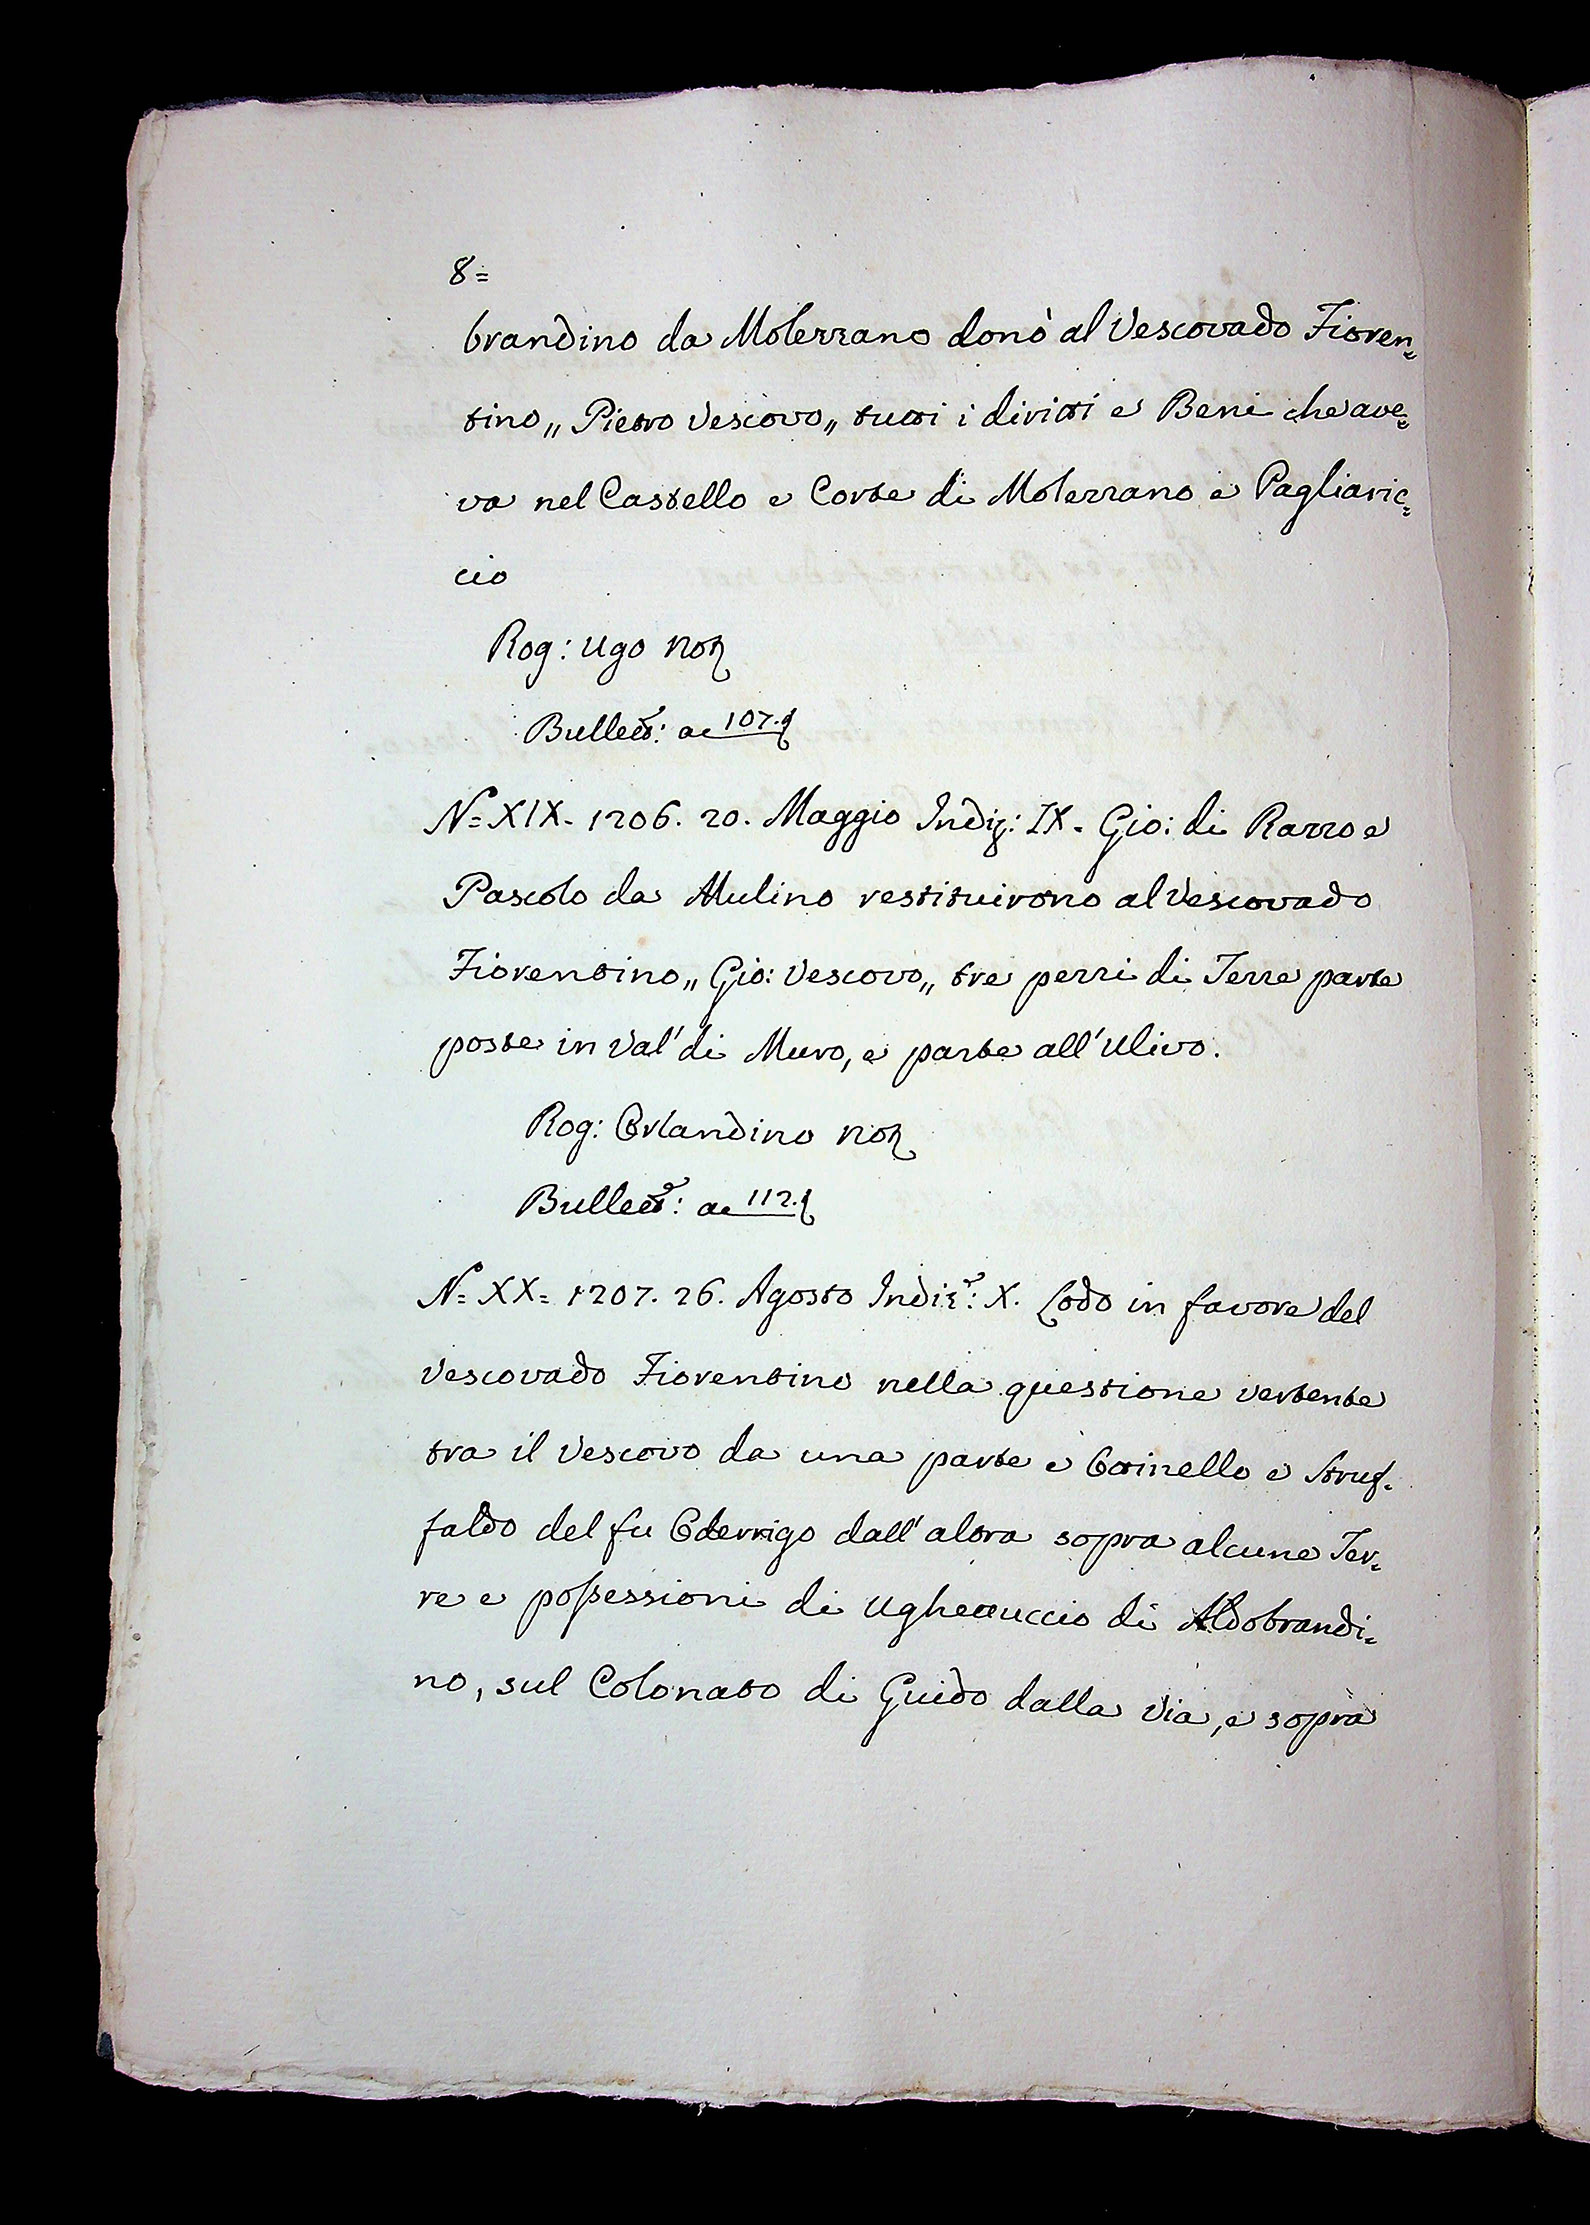 8=
brandino da Molezzano donò al Vescovado Fioren=
tino „ Pietro Vescovo „ tutti i diritti e Beni che ave=
va nel Castello e Corte di Molezzano e Pagliaric=
cio
Rog: Ugo Not
Bullett: a 107.
N= XIX. 1206. 20. Maggio Indiz: IX. Gio: di Razzo e
Pascolo da Mulino restituirono al Vescovado
Fiorentino „ Gio: Vescovo „ tre pezzi di Terre parte
poste in Val' di Muro, e parte all' Ulivo.
Rog: Orlandino Not
Bullett: a 112.
N= XX= 1207. 26. Agosto Indiz: X. Lodo in favore del
Vescovado Fiorentino nella questione vertente
tra il Vescovo da una parte e Ottinello e Struf=
faldo del fu Oderrigo dall' altra sopra alcune Ter=
re e possessioni di Ughettuccio di Aldobrandi=
no, sul Colonato di Guido dalla Via, e sopra